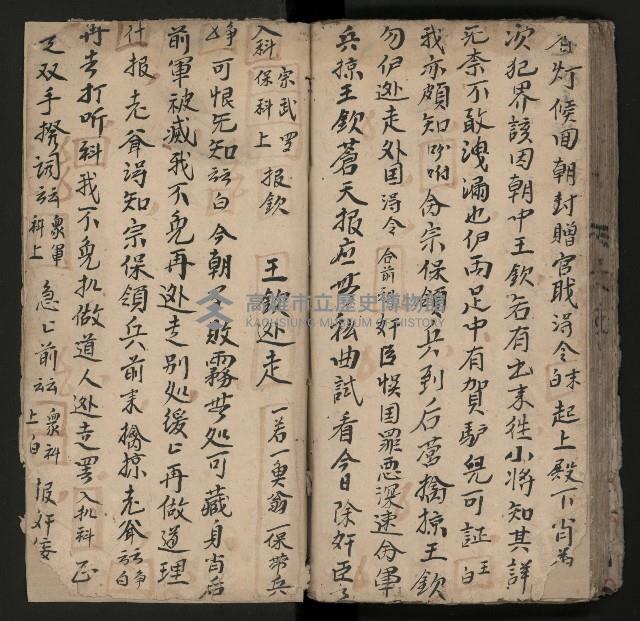 灯候回朝封贈官戝淂令白末起上殿下肖為
次犯界該因朝中王欽若有出来往小将知其詳
死柰不敢洩漏也伊両足中有賀馿兒可証白王
我亦頗知吩咐份宗保領兵到后营擒掠王欽
勿伊迯走外囯淂令合前奸臣悞囯罪恶深速份軍
兵掠王欽蒼天报应無私曲試看今日除奸臣
入科宗保武科罗上报欽王欽迯走一若一奥翁一保帶兵
可恨旡知云白今朝不敗露無処可藏身肖后
前軍被滅我不免再迯走别処缓匕再做道理
什报老爷淂知宗保領兵前来擒掠老爷云白
再去打听科我不免扒做道人迯走罢入扒科正
足双手撈詞云衆軍科上急匕前云衆科上白报奸侫
高雄市立歷史博物館
KAOHSIUNG MUSEUM OF HISTORY